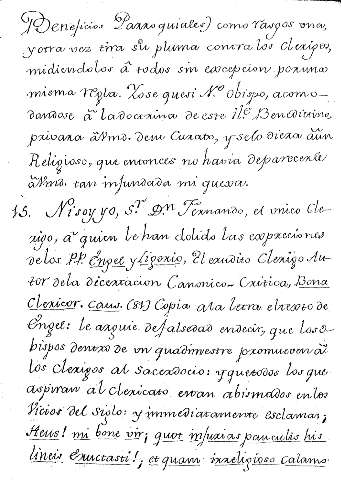 Beneficios Parroquiales) como rasgos una,
y otra vez tira su pluma contra los Clerigos,
midiendolos â todos sin excepcion por una
misma regla. Yo se que si N.º Obispo, acomo-
dandose â la doctrina de este Il.e Benedictino,
privara âVmd. de su Curato, y se lo diera âun
Religioso, que entonces no havia de parecerle
âVmd. tan infundada mi quexa.
15. Ni soy yo, S.r D.n Fernando, el unico Cle-
rigo, â quien le han dolido las expresiones
de los P.P. Engel y Ligorio, El erudito Clerigo Au-
tor de la disertacion Canonico-Critica, Bona
Clericor. Caus. (81) Copia ala letra el texto de
Engel: le arguie de falsedad en decir, que los O-
bispos dentro de un quadrimestre promueven â
los Clerigos al Sacerdocio: y que todos los que
aspiran al Clericato estan abismados en los
Vicios del Siglo: y immediatamente esclama;
Heus! mi bone vir; quot injurias pauculis his
lineis eructasti!; et quam irreligioso calamo